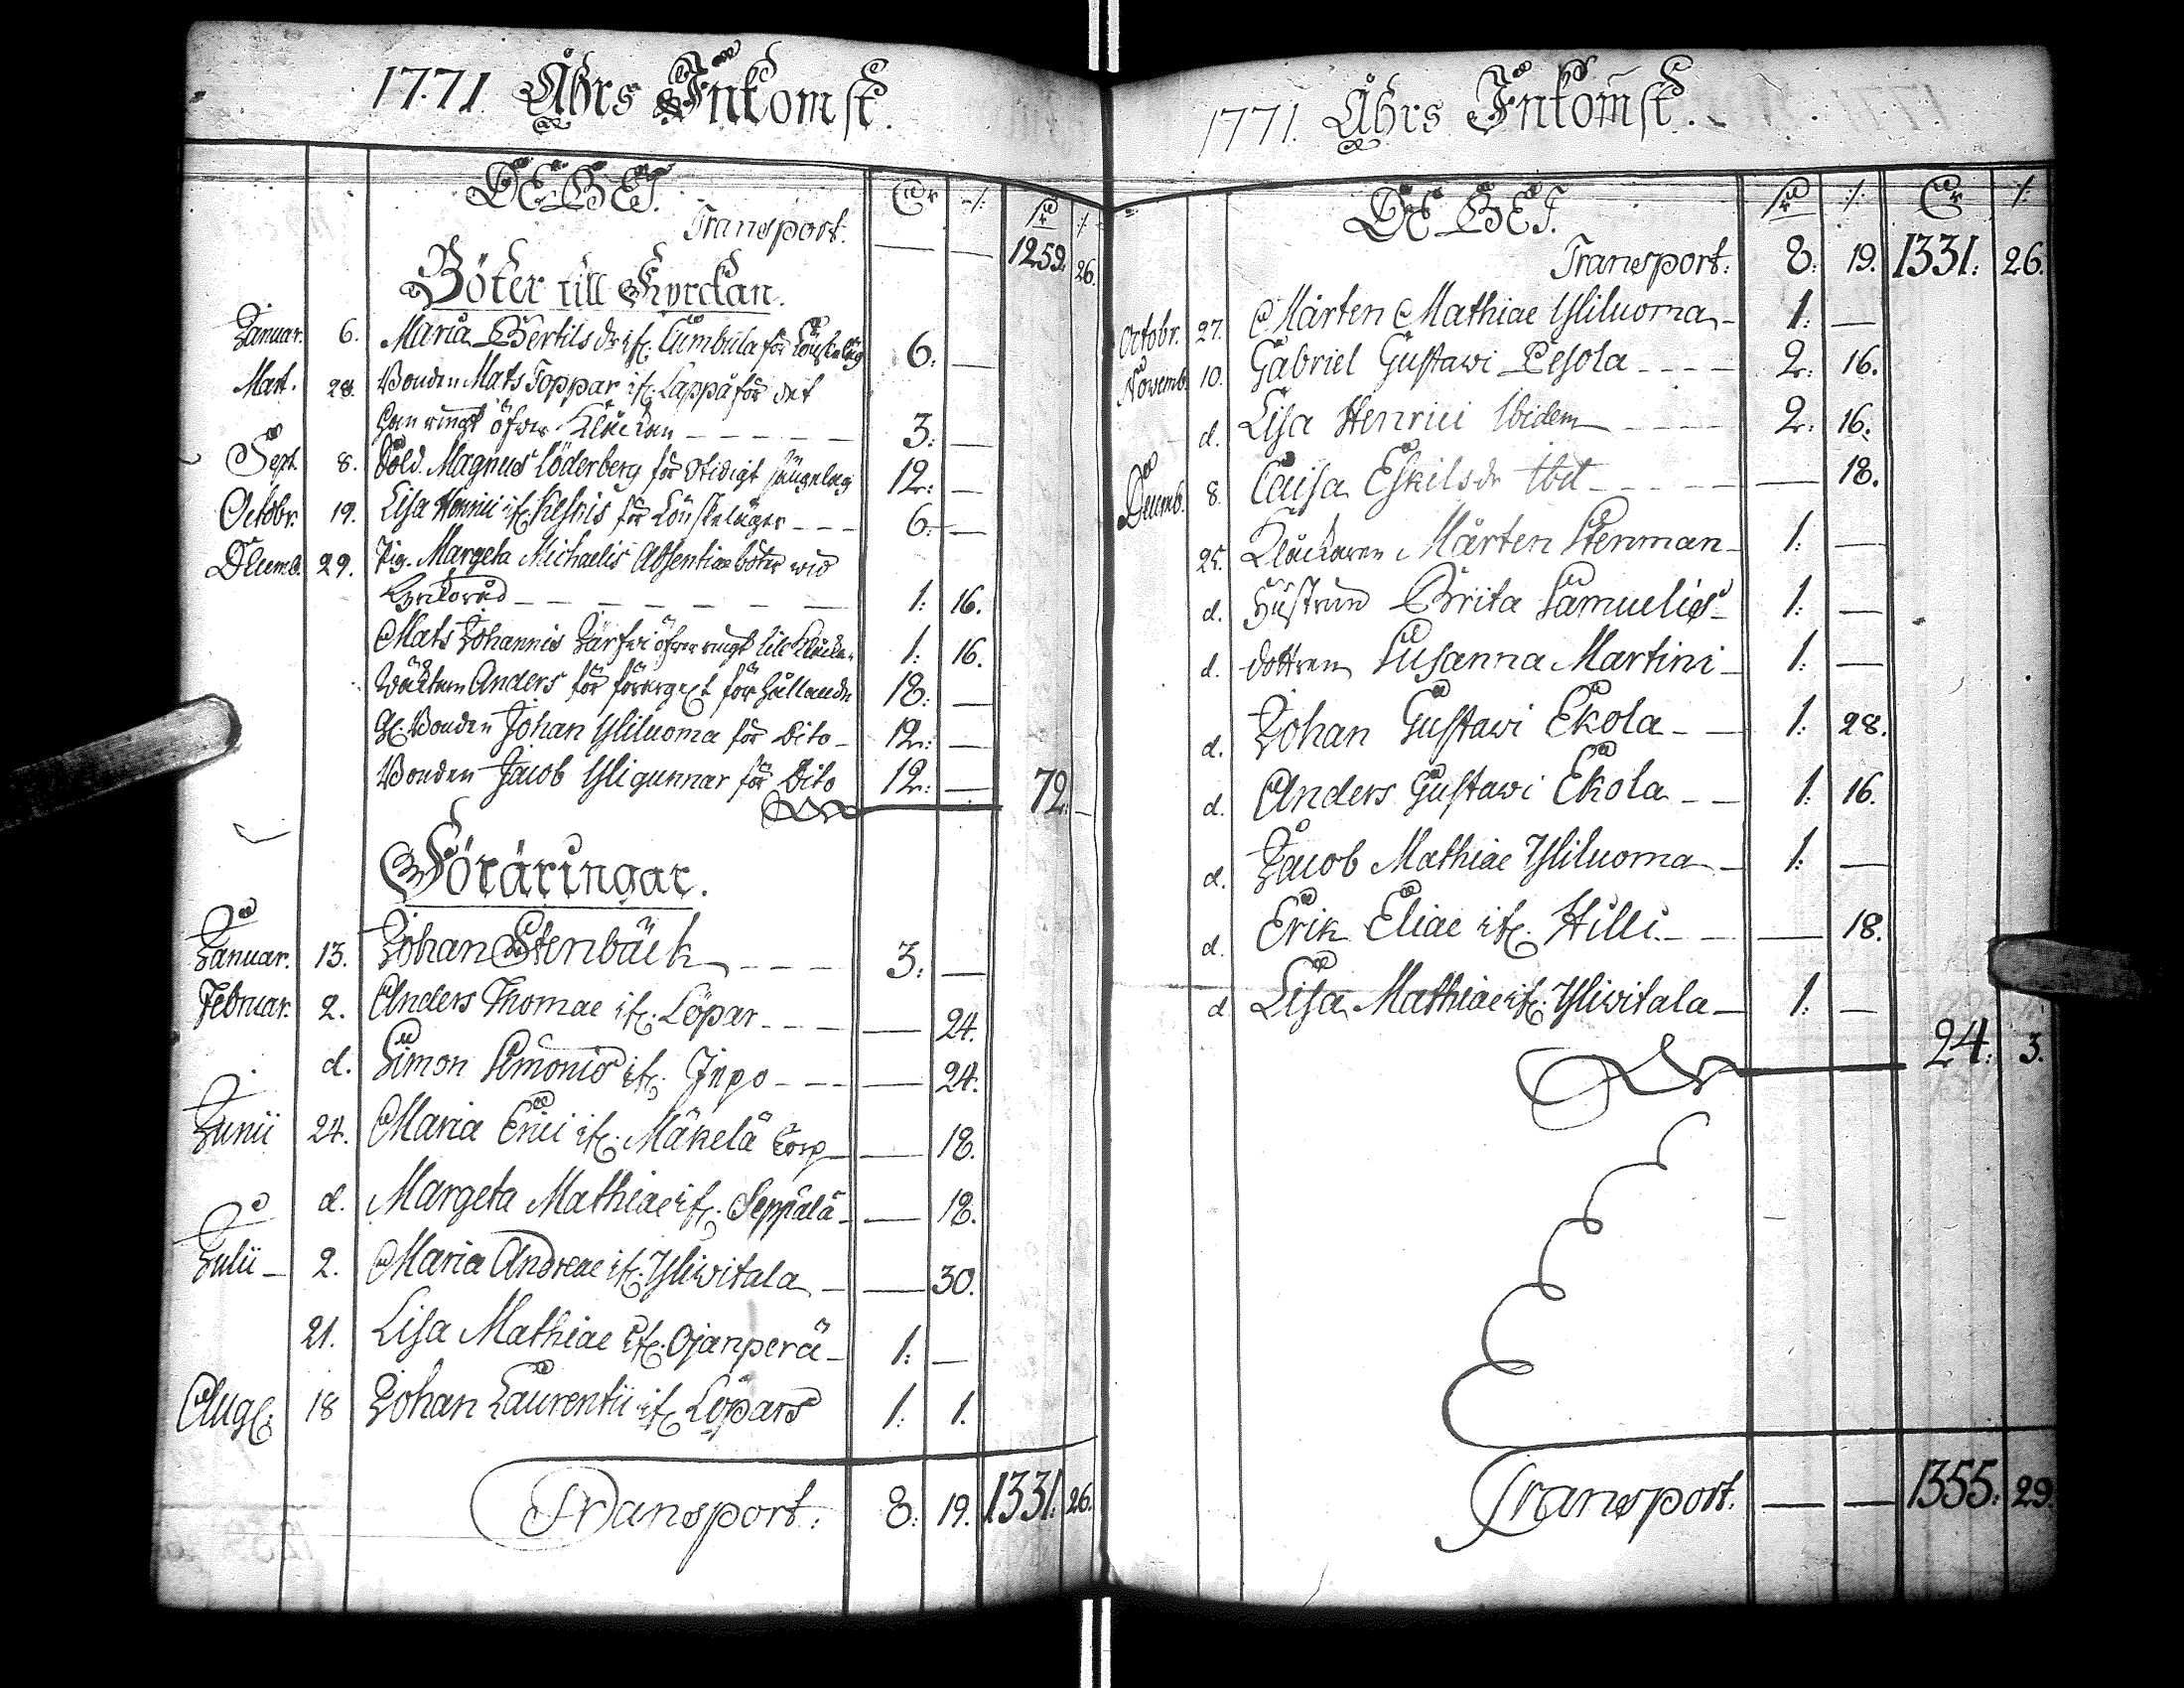 1771 Åhrs Inkomst.
DEBET. Cur :/:
Transport. — — 1259. 26.
Böter till Kyrckan.
Januar. 6. Maria Bertils dr ifr. Cumbula för Löuskeläg 6: —
Mart. 28. Bonden Mats Toppar ifr. Lappå för det
han ringt öfver Klåckan 3: —
Sept. 8. Sold. Magnus Söderberg för otidigt sängelag 12: —
Octobr. 19. Lisa Henrici ifr. Keskis för Löuskeläger 6: —
Decemb. 29. Pig. Margeta Michaelis Absentiae böter wid
Kyrkoråd 1: 16.
Mats Johannis Järfwi öfver ringt lille Klåcka 1: 16.
Anders för förargel. förhållande 18: —
Bonden Johan Yliluoma för Dito 12: —
Bonden Jacob Yligunnar för Dito 12: — 72: —
Föräringar.
Januar. 13. Johan Stenbäck 3: —
Februar. 2. Anders Thomae ifr. Löpar — 24.
d. Simon Simonis ifr. Jnpo — 24.
Junii 24. Maria Erici ifr. Mäkelä Torp — 18.
d. Margeta Mathiae ifr. Seppälä — 18.
Julii 2. Maria Andreae ifr. Yliwitala — 30.
21. Lisa Mathiae ifr. Ojanperä 1: —
Aug: 18 Johan Laurentii ifr Löpars 1: 1.
Transport. 8: 19. 1331: 26.
1771. Åhrs Inkomst.
DEBET. :/: Cur :/:
Transport: 8: 19. 1331: 26.
Octobr. 27. Mårten Mathiae Yliluoma 1: —
Novemb. 10. Gabriel Gustawi Pesola 2: 16.
d. Lisa Henrici Ibidem 2: 16.
Decemb. 8. Caisa Eskils dr Ibd — 18.
25. Klåckaren Mårten Stenman 1: —
d. Hustrun Brita Samuelis 1: —
d. dottren Susanna Martini 1: —
d. Johan Gustawi Ekola 1: 28.
d. Anders Gustawi Ekola 1: 16.
d. Jacob Mathiae Yliluoma 1: —
d. Erik Eliae ifr. Hilli — 18.
d Lisa Mathiae ifr. Yliwitala 1: —
24: 3.
Transport. — — 1355: 29.